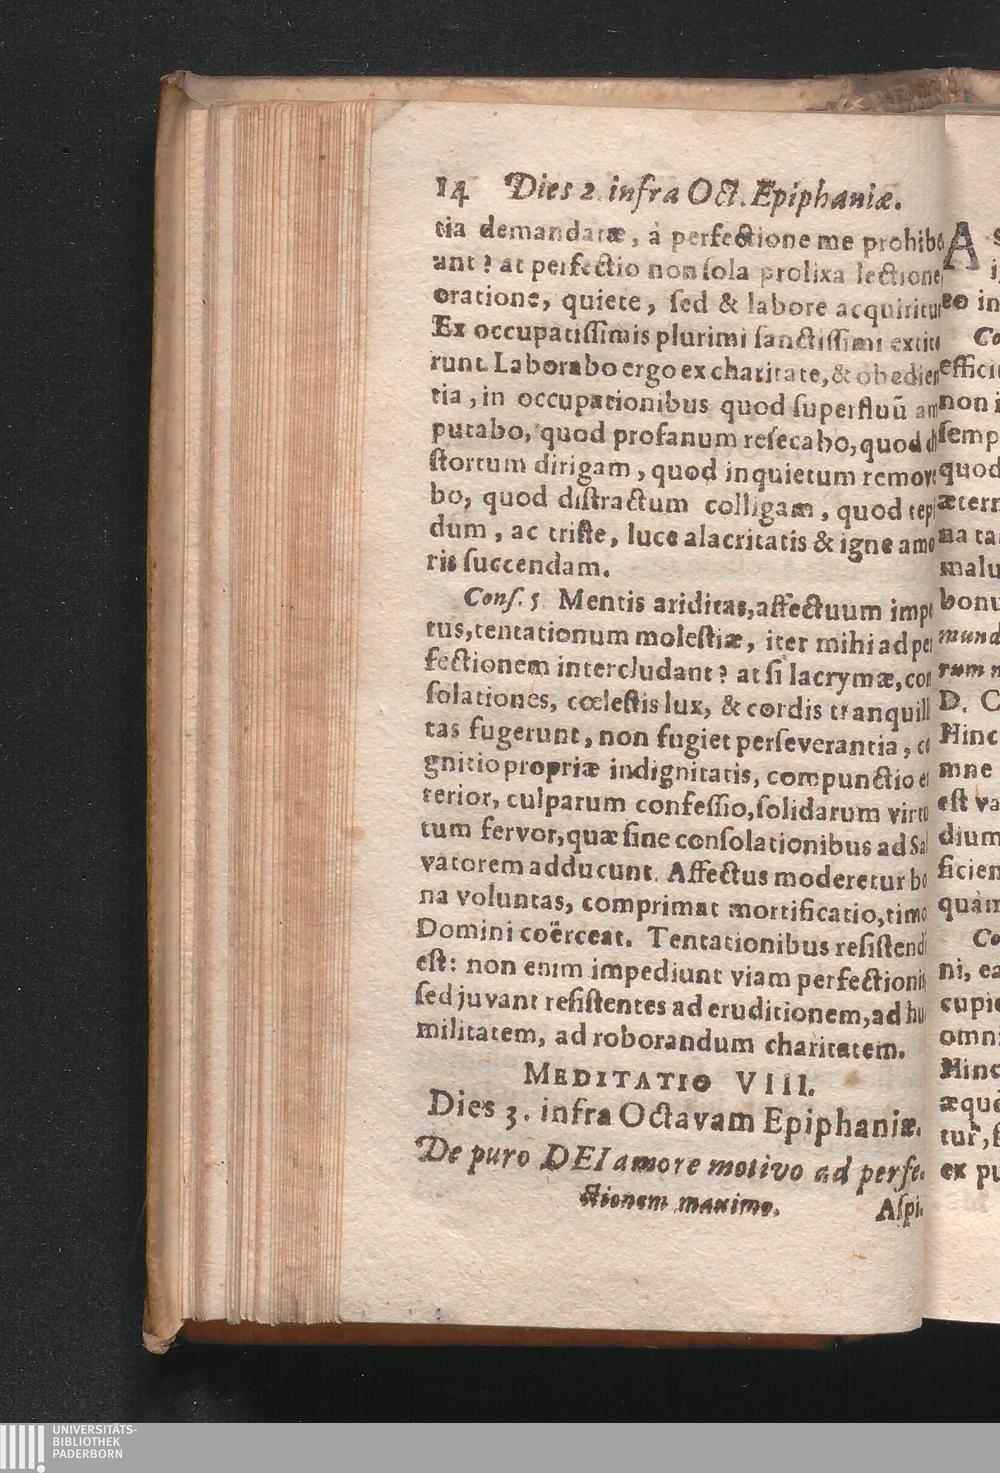 14 Dies 2. infra Oct. Epiphaniæ.
tia demandatæ, à perfectione me prohib
unt? at perfectio non ſola prolixa lectione
oratione, quiete, ſed & labore acquiritur
Ex occupatiſſimis plurimi ſanctiſſimi extite
runt. Laborabo ergo ex charitate, & obedien
tia, in occupationibus quod ſuperfluũ am
putabo, quod profanum reſecabo, quod di
ſtortum dirigam, quod inquietum remove
bo, quod diſtractum colligam, quod tepi
dum, ac triſte, luce alacritatis & igne amo
ris ſuccendam.
Conſ. 5 Mentis ariditas, affectuum impe
tus, tentationum moleſtiæ, iter mihi ad per
fectionem intercludant? at ſi lacrymæ, con
ſolationes, cœleſtis lux, & cordis tranquilli
tas fugerunt, non fugiet perſeverantia, co
gnitio propriæ indignitatis, compunctio ex
terior, culparum confeſſio, ſolidarum virtu
tum fervor, quæ ſine conſolationibus ad Sal
vatorem adducunt. Affectus moderetur bo
na voluntas, comprimat mortificatio, timo
Domini coërceat. Tentationibus reſiſtendi
eſt: non enim impediunt viam perfectionis
ſed juvant reſiſtentes ad eruditionem, ad hu
militatem, ad roborandum charitatem.
MEDITATIO VIII.
Dies 3. infra Octavam Epiphaniæ.
De puro DEI amore motivo ad perfe-
ctionem maximo.
Aſpi-
A
eo in
Co
effici
non i
ſemp
quod
ætern
na ta
malu
bonu
mund
rum n
D. C
Hinc
mne
eſt va
dium
ficien
quàm
Co
ni, ea
cupid
omni
Hinc
æquè
tur, ſ
ex pu
UNIVERSITÄTS-
BIBLIOTHEK
PADERBORN